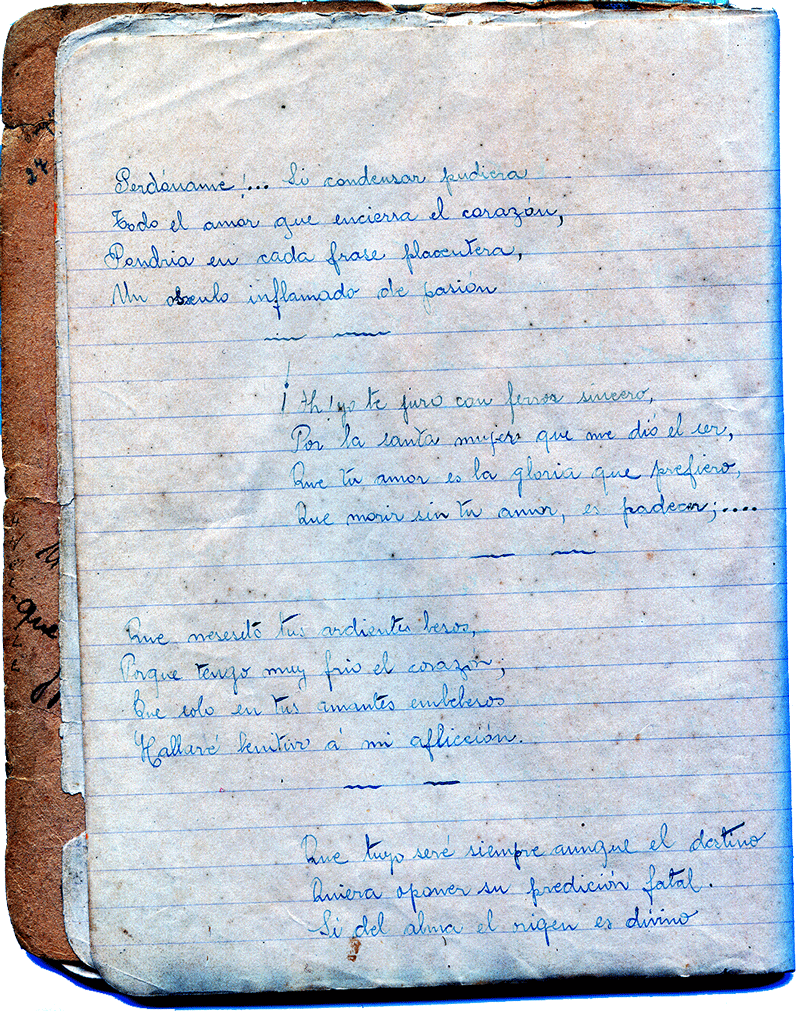 Perdóname!... Si condensar pudiera
Todo el amor que encierra el corazón,
Pondria en cada frase placentera,
Un osculo inflamado de pasión
¡Ah! yo te juro con fervor sincero,
Por la santa mujer que me dió el ser,
Que tu amor es la gloria que prefiero,
Que morir sin tu amor, es padecer;....
Que nesesitó tus ardientes besos,
Porque tengo muy frio el corazón;
Que solo en tus amantes embebesos
Hallaré lenitivo á mi aflicción.
Que tuyo seré siempre aunque el destino
Quiera oponer su predición fatal.
Si del alma el origen es divino
24
que